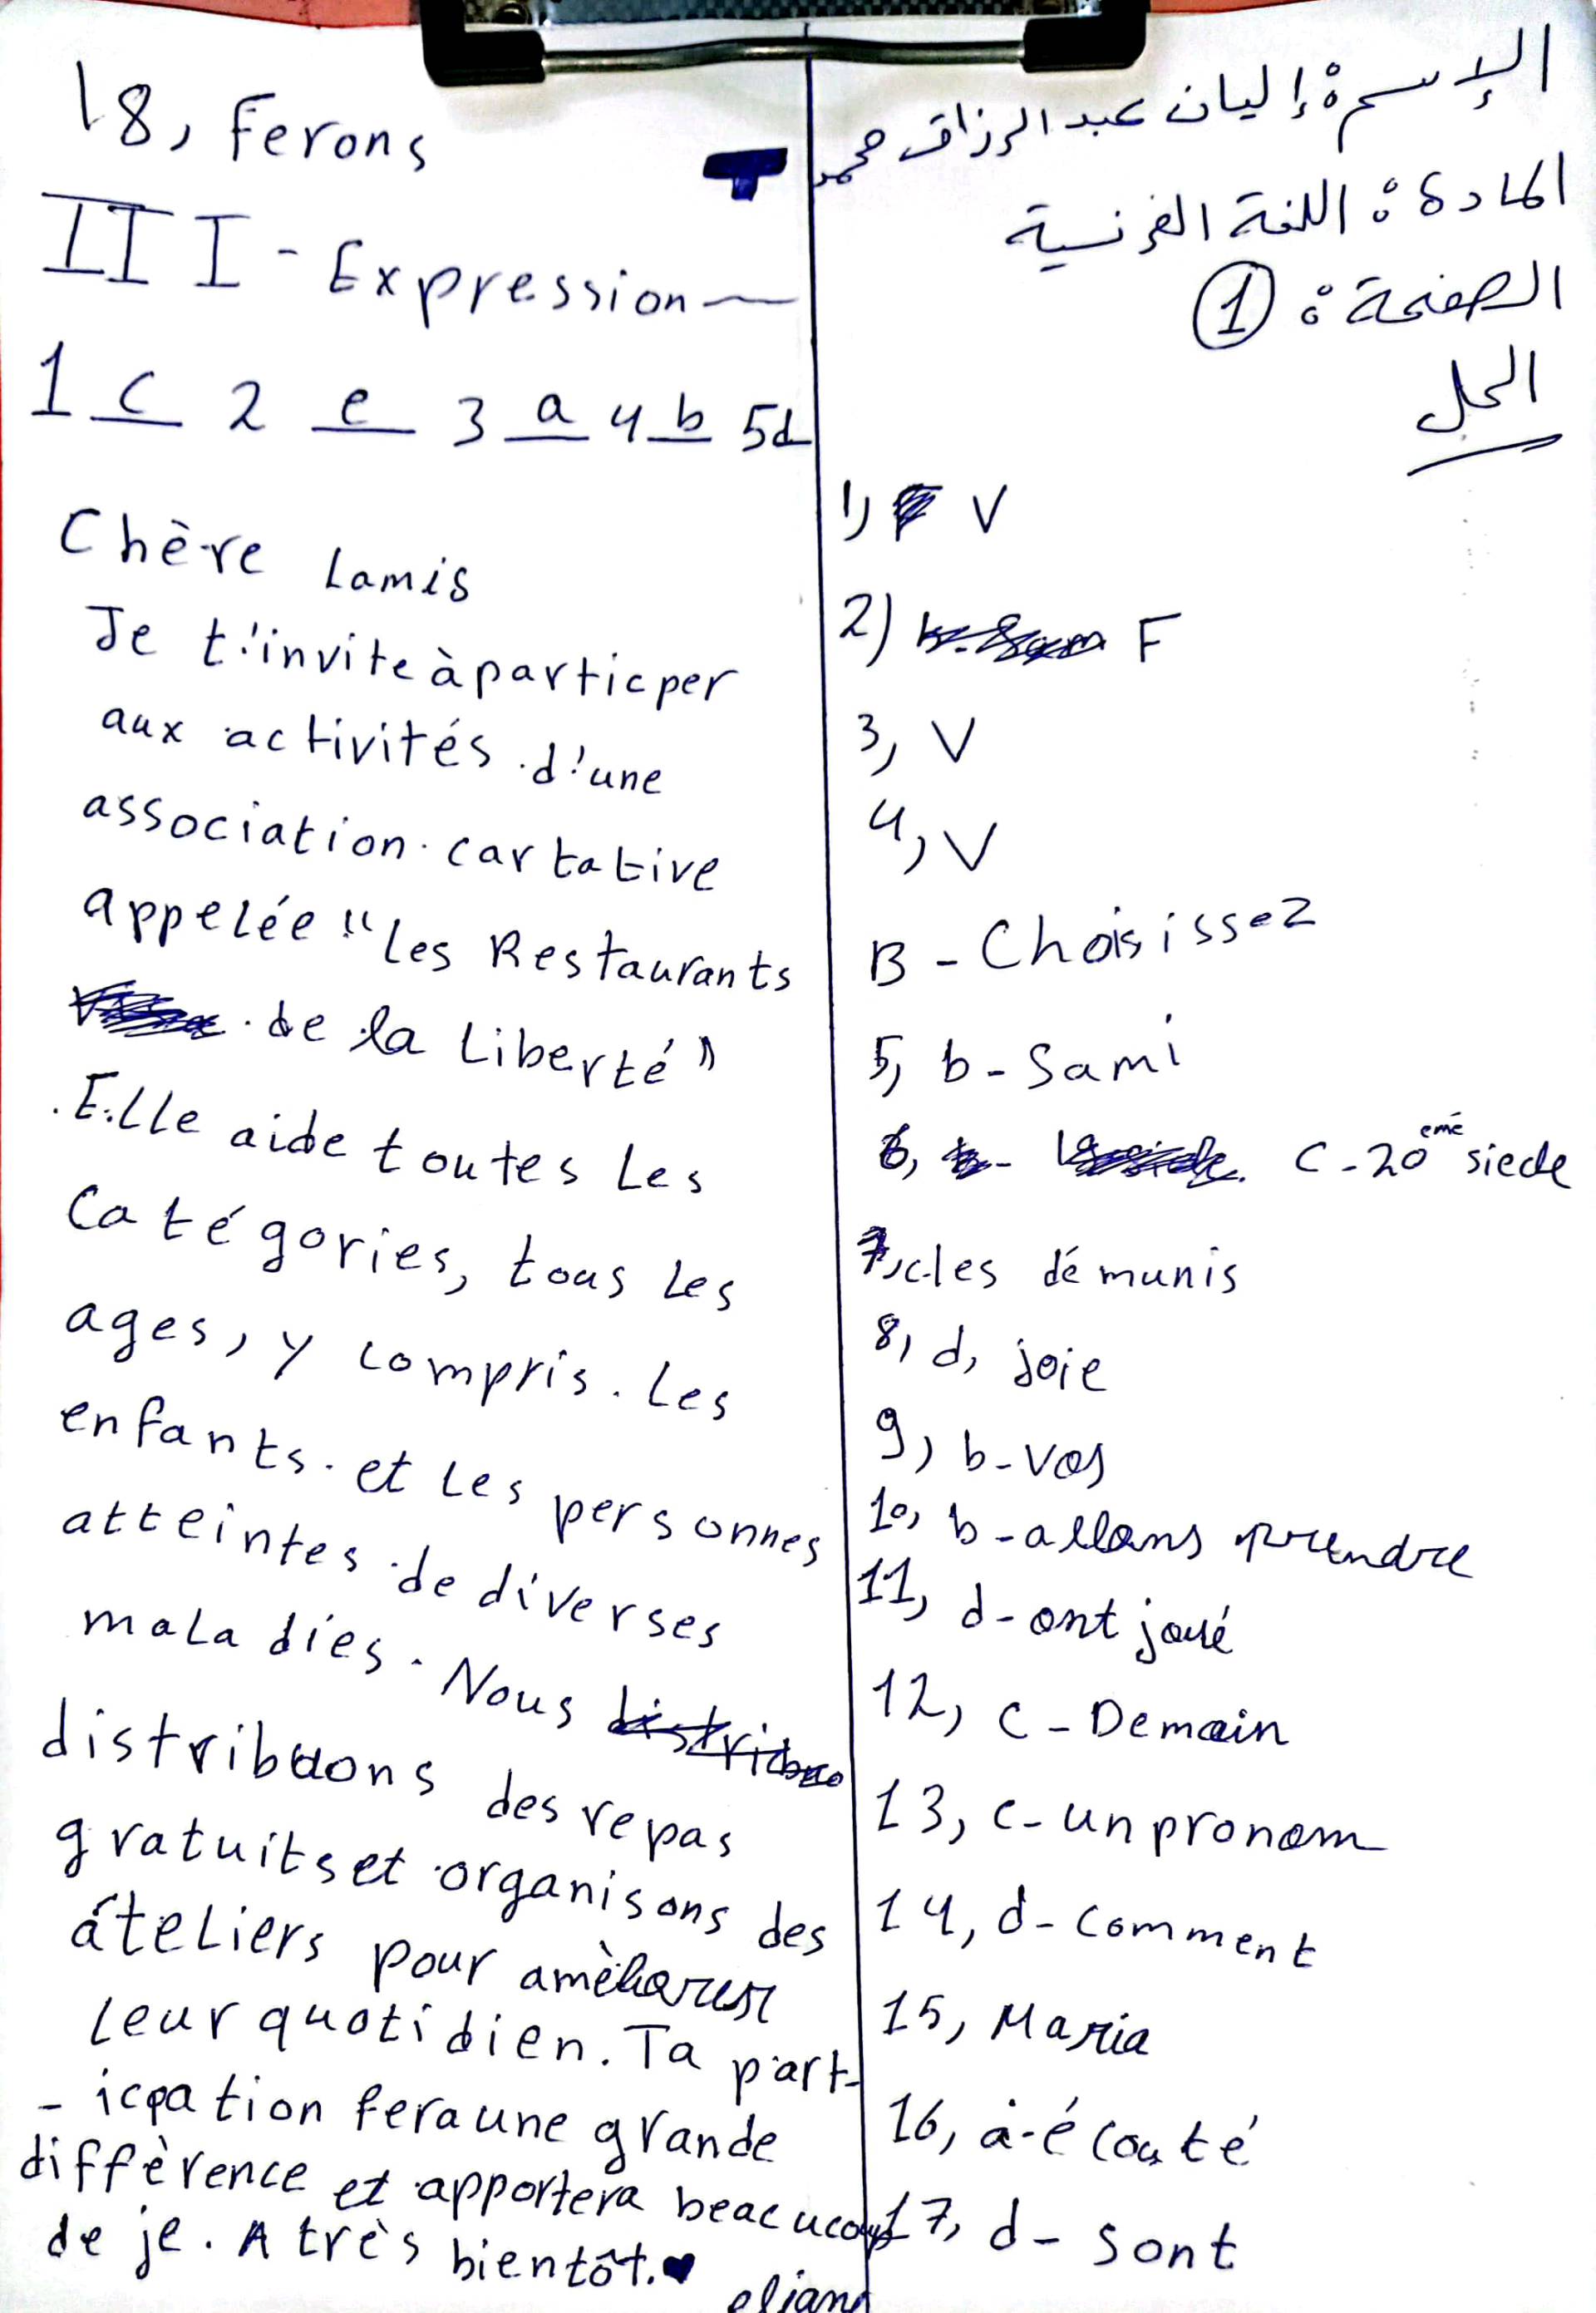 الإسم: إليان عبد الرزاق محمد
المادة: اللغة الفرنسية
الصفحة: 1
الحل
1) V
2) F
3, V
4, V
B - Choisissez
5, b - Sami
6, C - 20 eme siecle
7, c-les démunis
8, d, joie
9, b - vos
10, b - allons prendre
11, d - ont joué
12, c - Demain
13, c - un pronom
14, d - comment
15, Maria
16, a - écouté
17, d - sont
18, Ferons
III - Expression
1 c 2 e 3 a 4 b 5 d
Chère Lamis
Je t'invite à particper
aux activités d'une
association cartative
appelée "Les Restaurants
de la Liberté"
Elle aide toutes Les
Catégories, tous Les
ages, y compris Les
enfants et Les personnes
atteintes de diverses
maladies. Nous
distribuons des repas
gratuits et organisons des
áteliers pour amèliorer
leur quotidien. Ta part-
- icpation fera une grande
diffèrence et apportera beacucoup
de je. A très bientôt. ♥
eliane